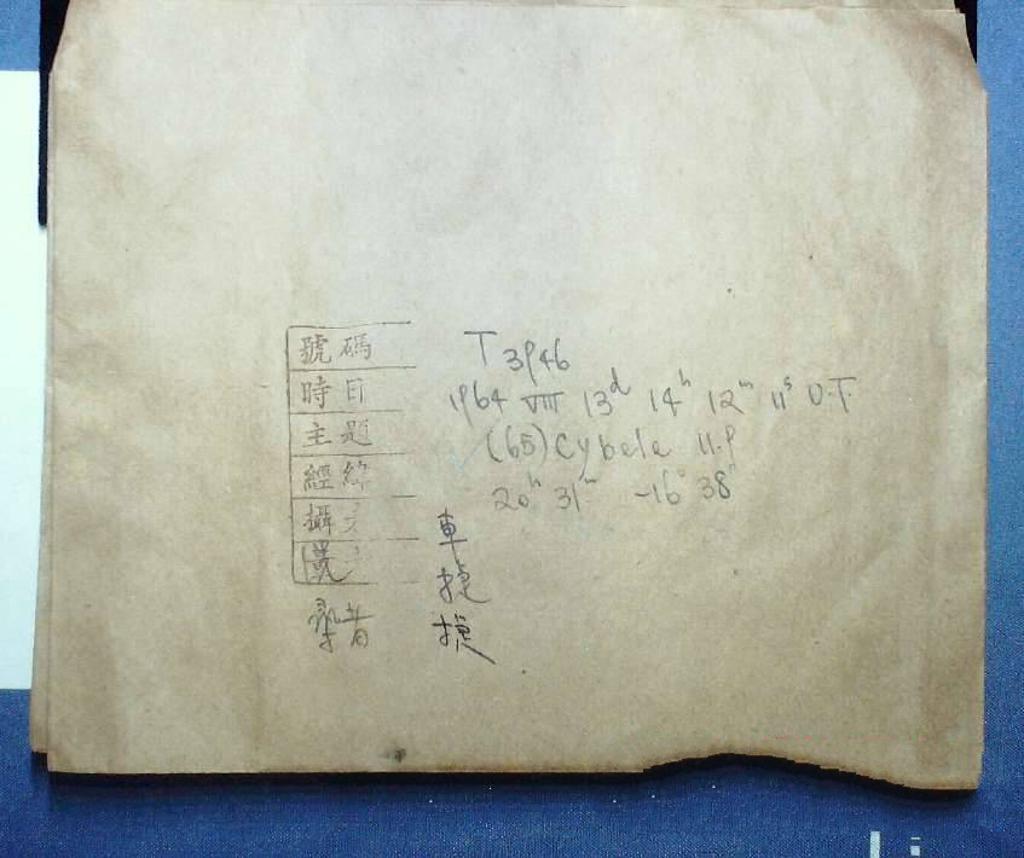 號碼 T 3946
時日 1964 VIII 13d 14h 12m 11s U.T.
主題 (65) Cybele 11.9
經緯 20h 31m -16° 38'
攝
尋者
車
捷